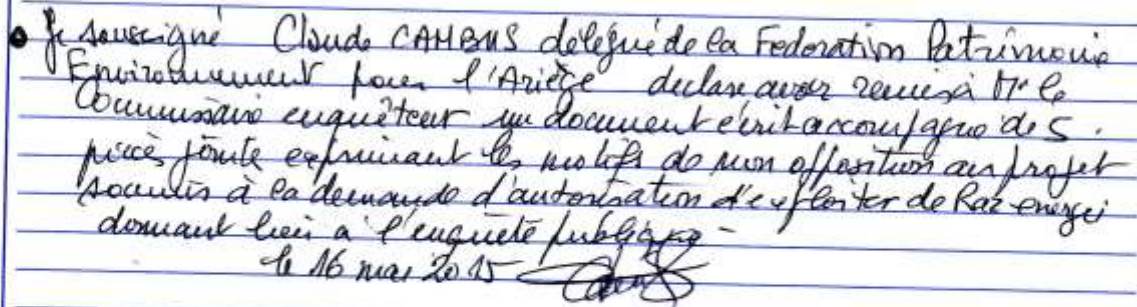 • Je soussigné Claude CAMBUS délégué de la Federation Patrimoine
Environnement pour l'Ariège declare avoir remis à Mr le
Commissaire enquêteur un document écrit accompagné de 5
pièces jointe exprimant les motifs de mon opposition au projet
soumis à la demande d'autorisation d'exploiter de Raz-energi
donnant lieu a l'enquête publique -
le 16 mai 2015